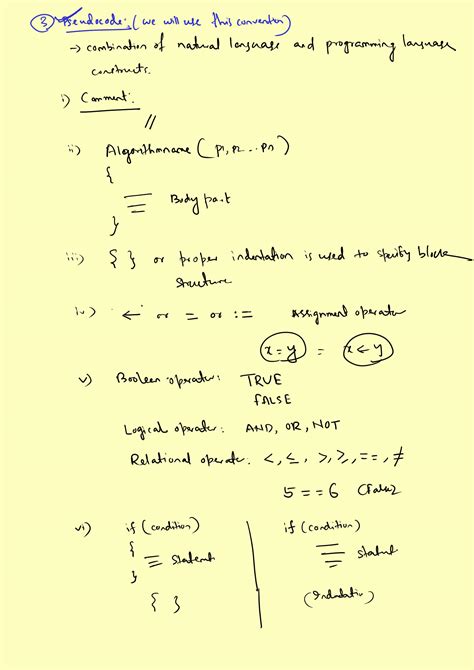 ③ Pseudocode: (we will use this convention)
→ combination of natural language and programming language
constructs.
i) Comment:
//
ii) Algorithmname (p1, p2 ... pn)
{
Body part
}
iii) { } or proper indentation is used to specify block
structure
iv) ← or = or := Assignment operator
x=y = x←y
v) Boolean operator: TRUE
FALSE
Logical operator: AND, OR, NOT
Relational operator: <, ≤, >, ≥, ==, ≠
5 == 6 (False)
vi) if (condition) if (condition)
{
statement statement
}
{ } (Indentation)